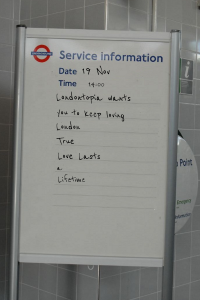 Service information
Date 19 Nov
Time 14:00
Londontopia wants
you to keep loving
London
True
Love Lasts
a
Lifetime
Point
Emergency
Information